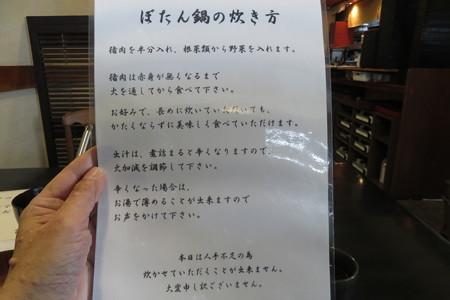 ぼたん鍋の炊き方
猪肉を半分入れ、根菜類から野菜を入れます。
猪肉は赤身が無くなるまで
火を通してから食べて下さい。
お好みで、長めに炊いていただいても、
かたくならずに美味しく食べていただけます。
出汁は、煮詰まると辛くなりますので、
火加減を調節して下さい。
辛くなった場合は、
お湯で薄めることが出来ますので
お声をかけて下さい。
本日は人手不足の為
炊かせていただくことが出来ません。
大変申し訳ございません。